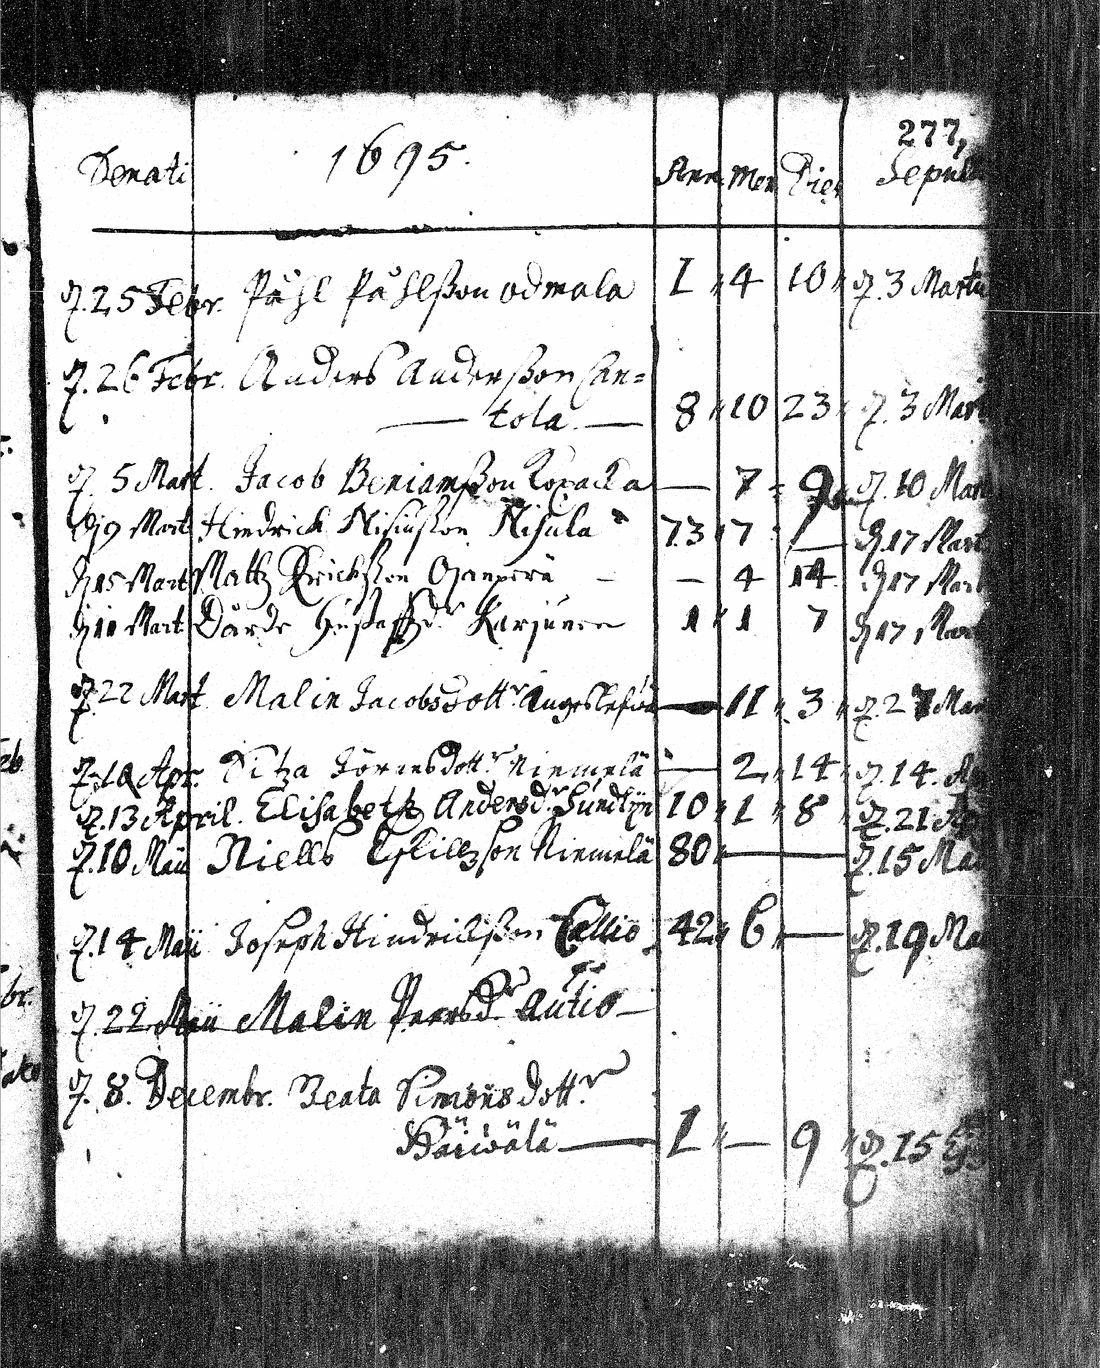 277,
Denati 1695. Ann Men Dies Sepult
d. 25 Febr. Påhl Påhlßon odmala 1 " 4 " 10 " d. 3 Martii
d. 26 Febr. Anders Anderßon Can=
tola. 8 " 10 " 23 " d. 3 Mart
d. 5 Mart. Jacob Beniamßon Kopacka — 7 " 9 d. 10 Mart
d 9 Mart Hindrick Nisiußon Nisula 73 " 7 — d 17 Mart
d 15 Mart Matts Erichßon Ojanperä — — 4 14 d 17 Mart
d 11 Mart Dårde Gustaffsdr Karjunen 1 1 7 d 17 Mart
d. 22 Mart Malin Jacobsdottr — 11 " 3 " d. 27 Mar
d. 10 Apr. Sitza Jörensdottr Niemelä — 2 " 14 " d. 14. Ap
d. 13 April. Elisabeth Andersdr Sundlijn 10 " 1 " 8 " d. 21 Ap
d. 10 Maii Niells Eskillsson Niemelä 80 " — d. 15 Mai
d. 14 Maii Joseph Hindrichßon Callio 42 " 6 " — d. 19 Mai
d. 22 Maii Malin Peersdr Autio —
d. 8. Decembr. Beata Simonsdottr
Häiwälä — 1 " — 9 " d. 15